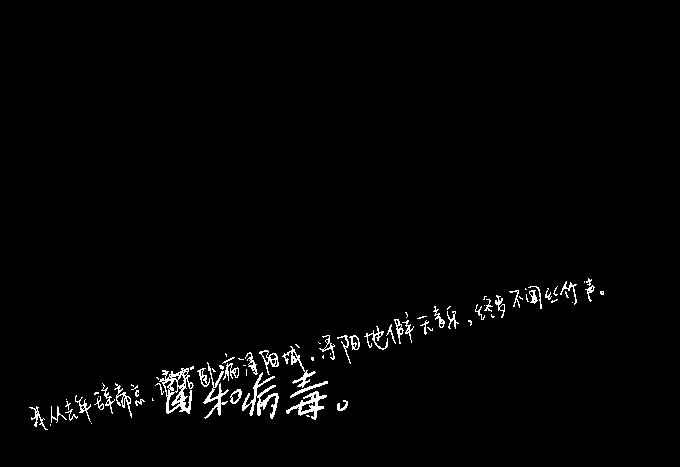 我从去年辞帝京,谪居卧病浔阳城.浔阳地僻无音乐,终岁不闻丝竹声。
菌和病毒。